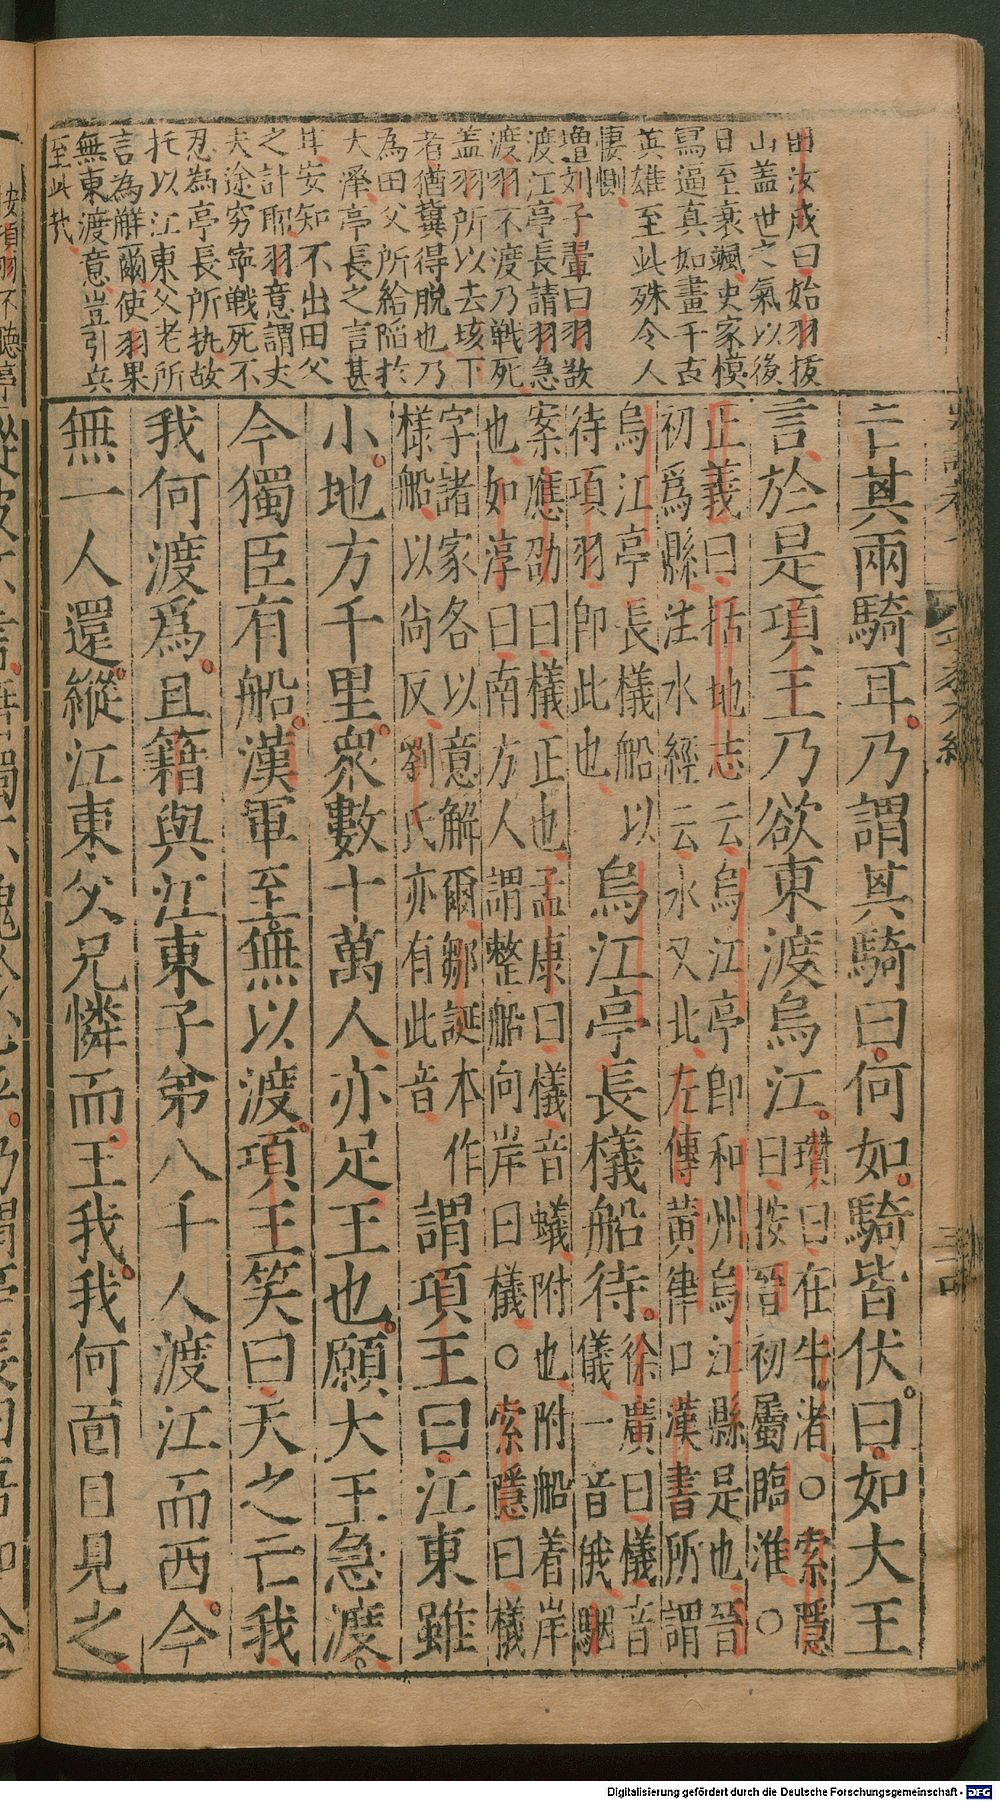 田汝成曰始羽拔
山蓋世之氣以後
日至衰颯史家模
寫過真如畫千古
英雄至此殊令人
悽惻
增劉子翬曰羽敗
渡江亭長請羽急
渡羽不渡乃戰死
蓋羽所以去垓下
者猶冀得脫也乃
為田父所紿陷於
大澤亭長之言甚
甘安知不出田父
之計耶羽意謂丈
夫途窮寧戰死不
忍為亭長所執故
托以江東父老所
言為辭爾使羽果
無東渡意豈引兵
至此哉
亡其兩騎耳乃謂其騎曰何如騎皆伏曰如大王
言於是項王乃欲東渡烏江
瓚曰在牛渚○索隱
曰按晉初屬臨淮○
正義曰括地志云烏江亭即和州烏江縣是也晉
初爲縣注水經云水又北左傳黃律口漢書所謂
烏江亭長檥船以
待項羽即此也
烏江亭長檥船待
徐廣曰檥音
儀一音俄駰
案應劭曰檥正也孟康曰檥音蟻附也附船着岸
也如淳曰南方人謂整船向岸曰檥○索隱曰檥
字諸家各以意解爾鄒誕本作
樣船以尚反劉氏亦有此音
謂項王曰江東雖
小地方千里衆數十萬人亦足王也願大王急渡
今獨臣有船漢軍至無以渡項王笑曰天之亡我
我何渡爲且籍與江東子弟八千人渡江而西今
無一人還縱江東父兄憐而王我我何面目見之
Digitalisierung gefördert durch die Deutsche Forschungsgemeinschaft - DFG